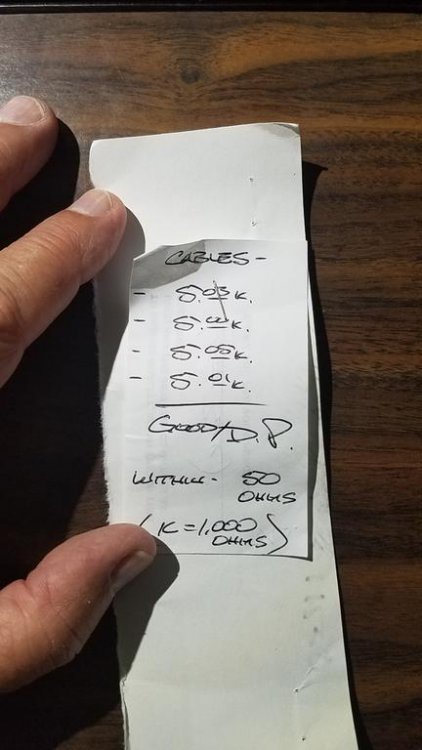 CABLES -
- 5.03 K.
- 5.00 K.
- 5.05 K.
- 5.01 K.
GOOD/D.P.
WITHIN - 50
OHMS
(K = 1,000
OHMS)